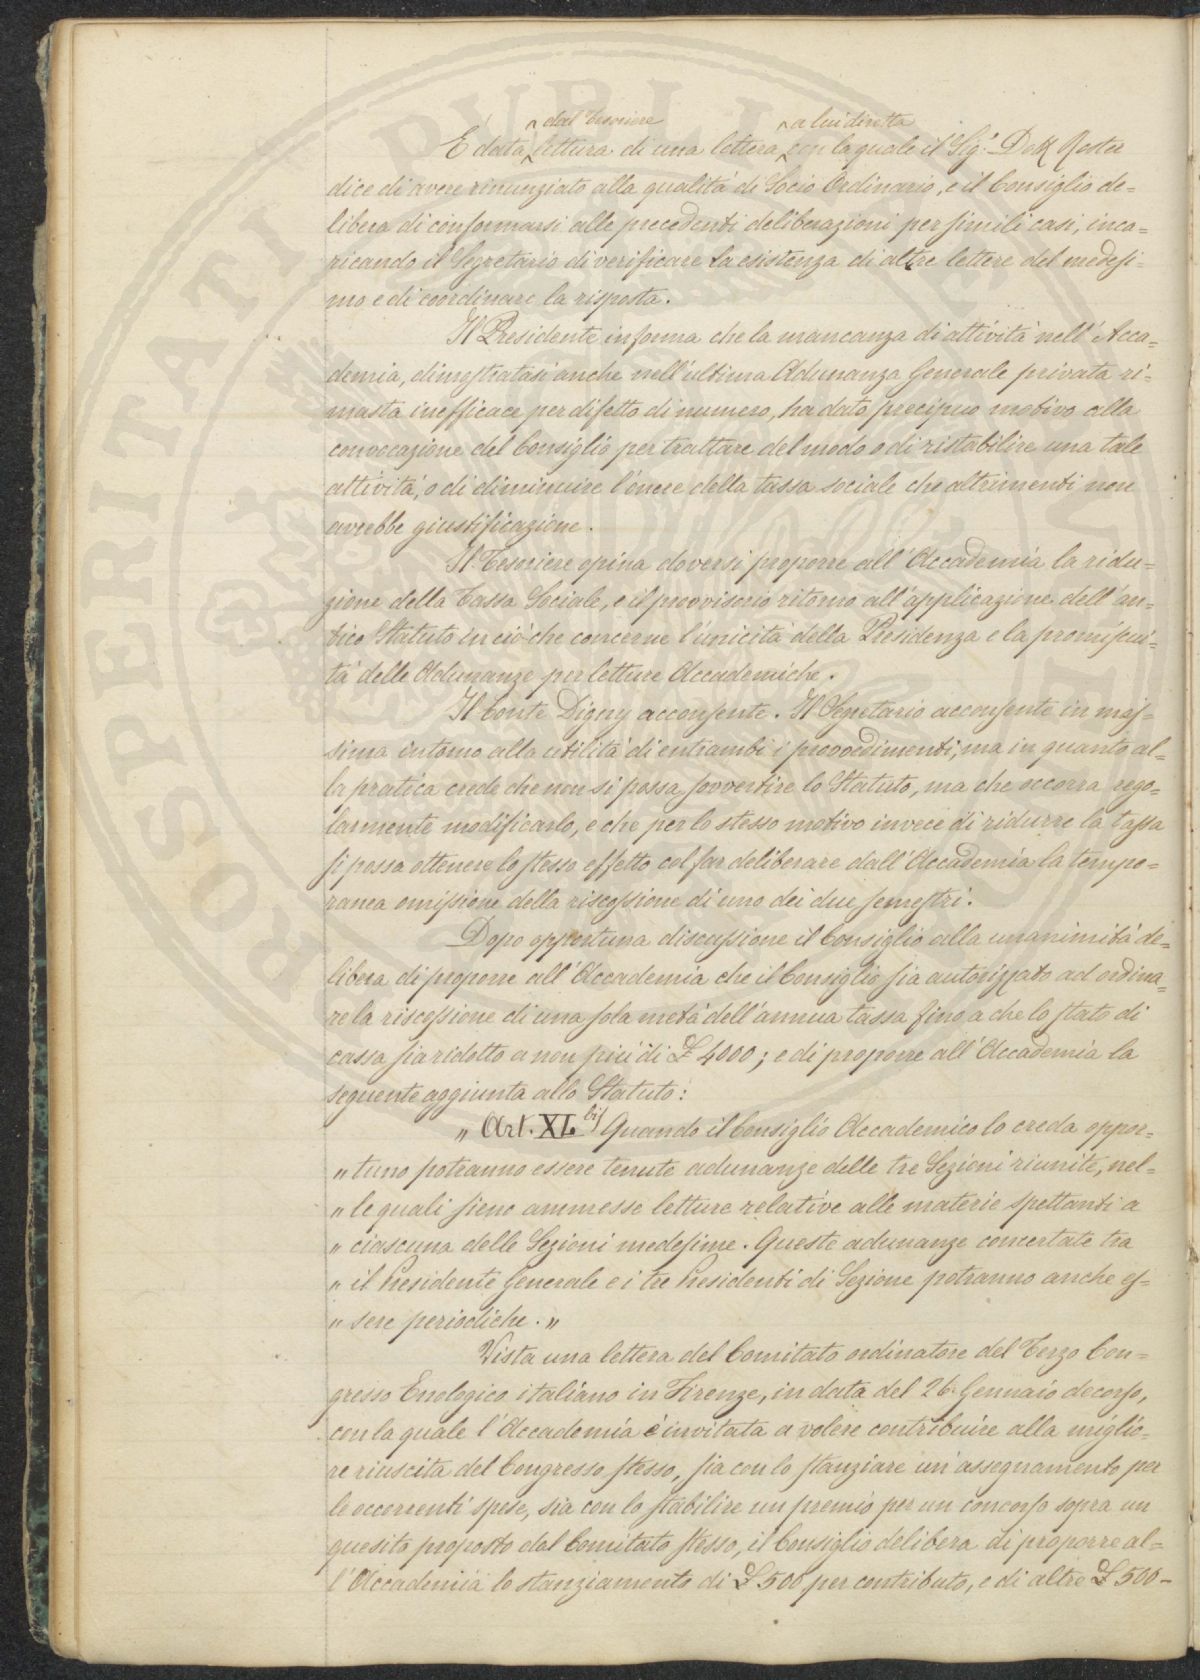 È data ^dal Tesoriere lettura di una lettera ^a lui diretta con la quale il Sig.r Dott Roster
dice di avere rinunziato alla qualità di Socio Ordinario, e il Consiglio de=
libera di conformarsi alle precedenti deliberazioni per simili casi, inca=
ricando il Segretario di verificare la esistenza di altre lettere del medesi=
mo e di coordinare la risposta.
Il Presidente informa che la mancanza di attività nell'Acca=
demia, dimostratasi anche nell'ultima Adunanza Generale privata ri=
masta inefficace per difetto di numero, ha dato precipuo motivo alla
convocazione del Consiglio per trattare del modo o di ristabilire una tale
attività, o di diminuire l'onere della tassa sociale che altrimenti non
avrebbe giustificazione.
Il Tesoriere opina doversi proporre all'Accademia la ridu=
zione della Tassa Sociale, e il provvisorio ritorno all'applicazione dell'an=
tico Statuto in ciò che concerne l'unicità della Presidenza e la promiscui=
tà delle Adunanze per letture Accademiche.
Il Conte Digny acconsente. Il Segretario acconsente in mas=
sima intorno alla utilità di entrambi i provvedimenti, ma in quanto al=
la pratica crede che non si possa sovvertire lo Statuto, ma che occorra rego=
larmente modificarlo, e che per lo stesso motivo invece di ridurre la tassa
si possa ottenere lo stesso effetto col far deliberare dall'Accademia la tempo=
ranea omissione della riscossione di uno dei due semestri.
Dopo opportuna discussione il Consiglio alla unanimità de=
libera di proporre all'Accademia che il Consiglio sia autorizzato ad ordina=
re la riscossione di una sola metà dell'annua tassa fino a che lo stato di
cassa sia ridotto a non più di £ 4000; e di proporre all'Accademia la
seguente aggiunta allo Statuto:
„ Art. XL bis Quando il Consiglio Accademico lo creda oppor=
„ tuno potranno essere tenute adunanze delle tre Sezioni riunite, nel=
„ le quali sieno ammesse letture relative alle materie spettanti a
„ ciascuna delle Sezioni medesime. Queste adunanze concertate tra
„ il Presidente Generale e i tre Presidenti di Sezione potranno anche es=
„ sere periodiche. „
Vista una lettera del Comitato ordinatore del Terzo Con=
gresso Enologico italiano in Firenze, in data del 26 Gennaio decorso,
con la quale l'Accademia è invitata a volere contribuire alla miglio=
re riuscita del Congresso stesso, sia con lo stanziare un'assegnamento per
le occorrenti spese, sia con lo stabilire un premio per un concorso sopra un
quesito proposto dal Comitato stesso, il Consiglio delibera di proporre al=
l'Accademia lo stanziamento di £ 500 per contributo, e di altre £ 500-
PROSPERITATI PUBLICAE